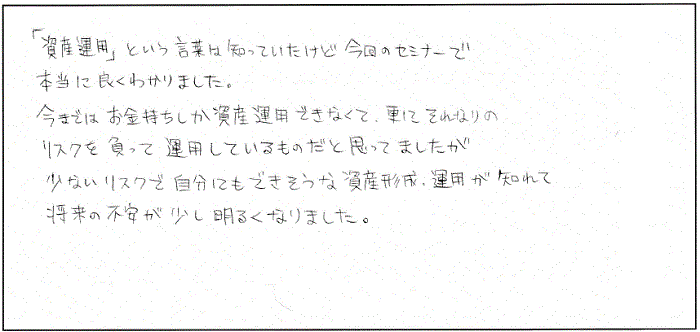 「資産運用」という言葉は知っていたけど今回のセミナーで
本当に良くわかりました。
今まではお金持ちしか資産運用できなくて、更にそれなりの
リスクを負って運用しているものだと思ってましたが
少ないリスクで自分にもできそうな資産形成、運用が知れて
将来の不安が少し明るくなりました。